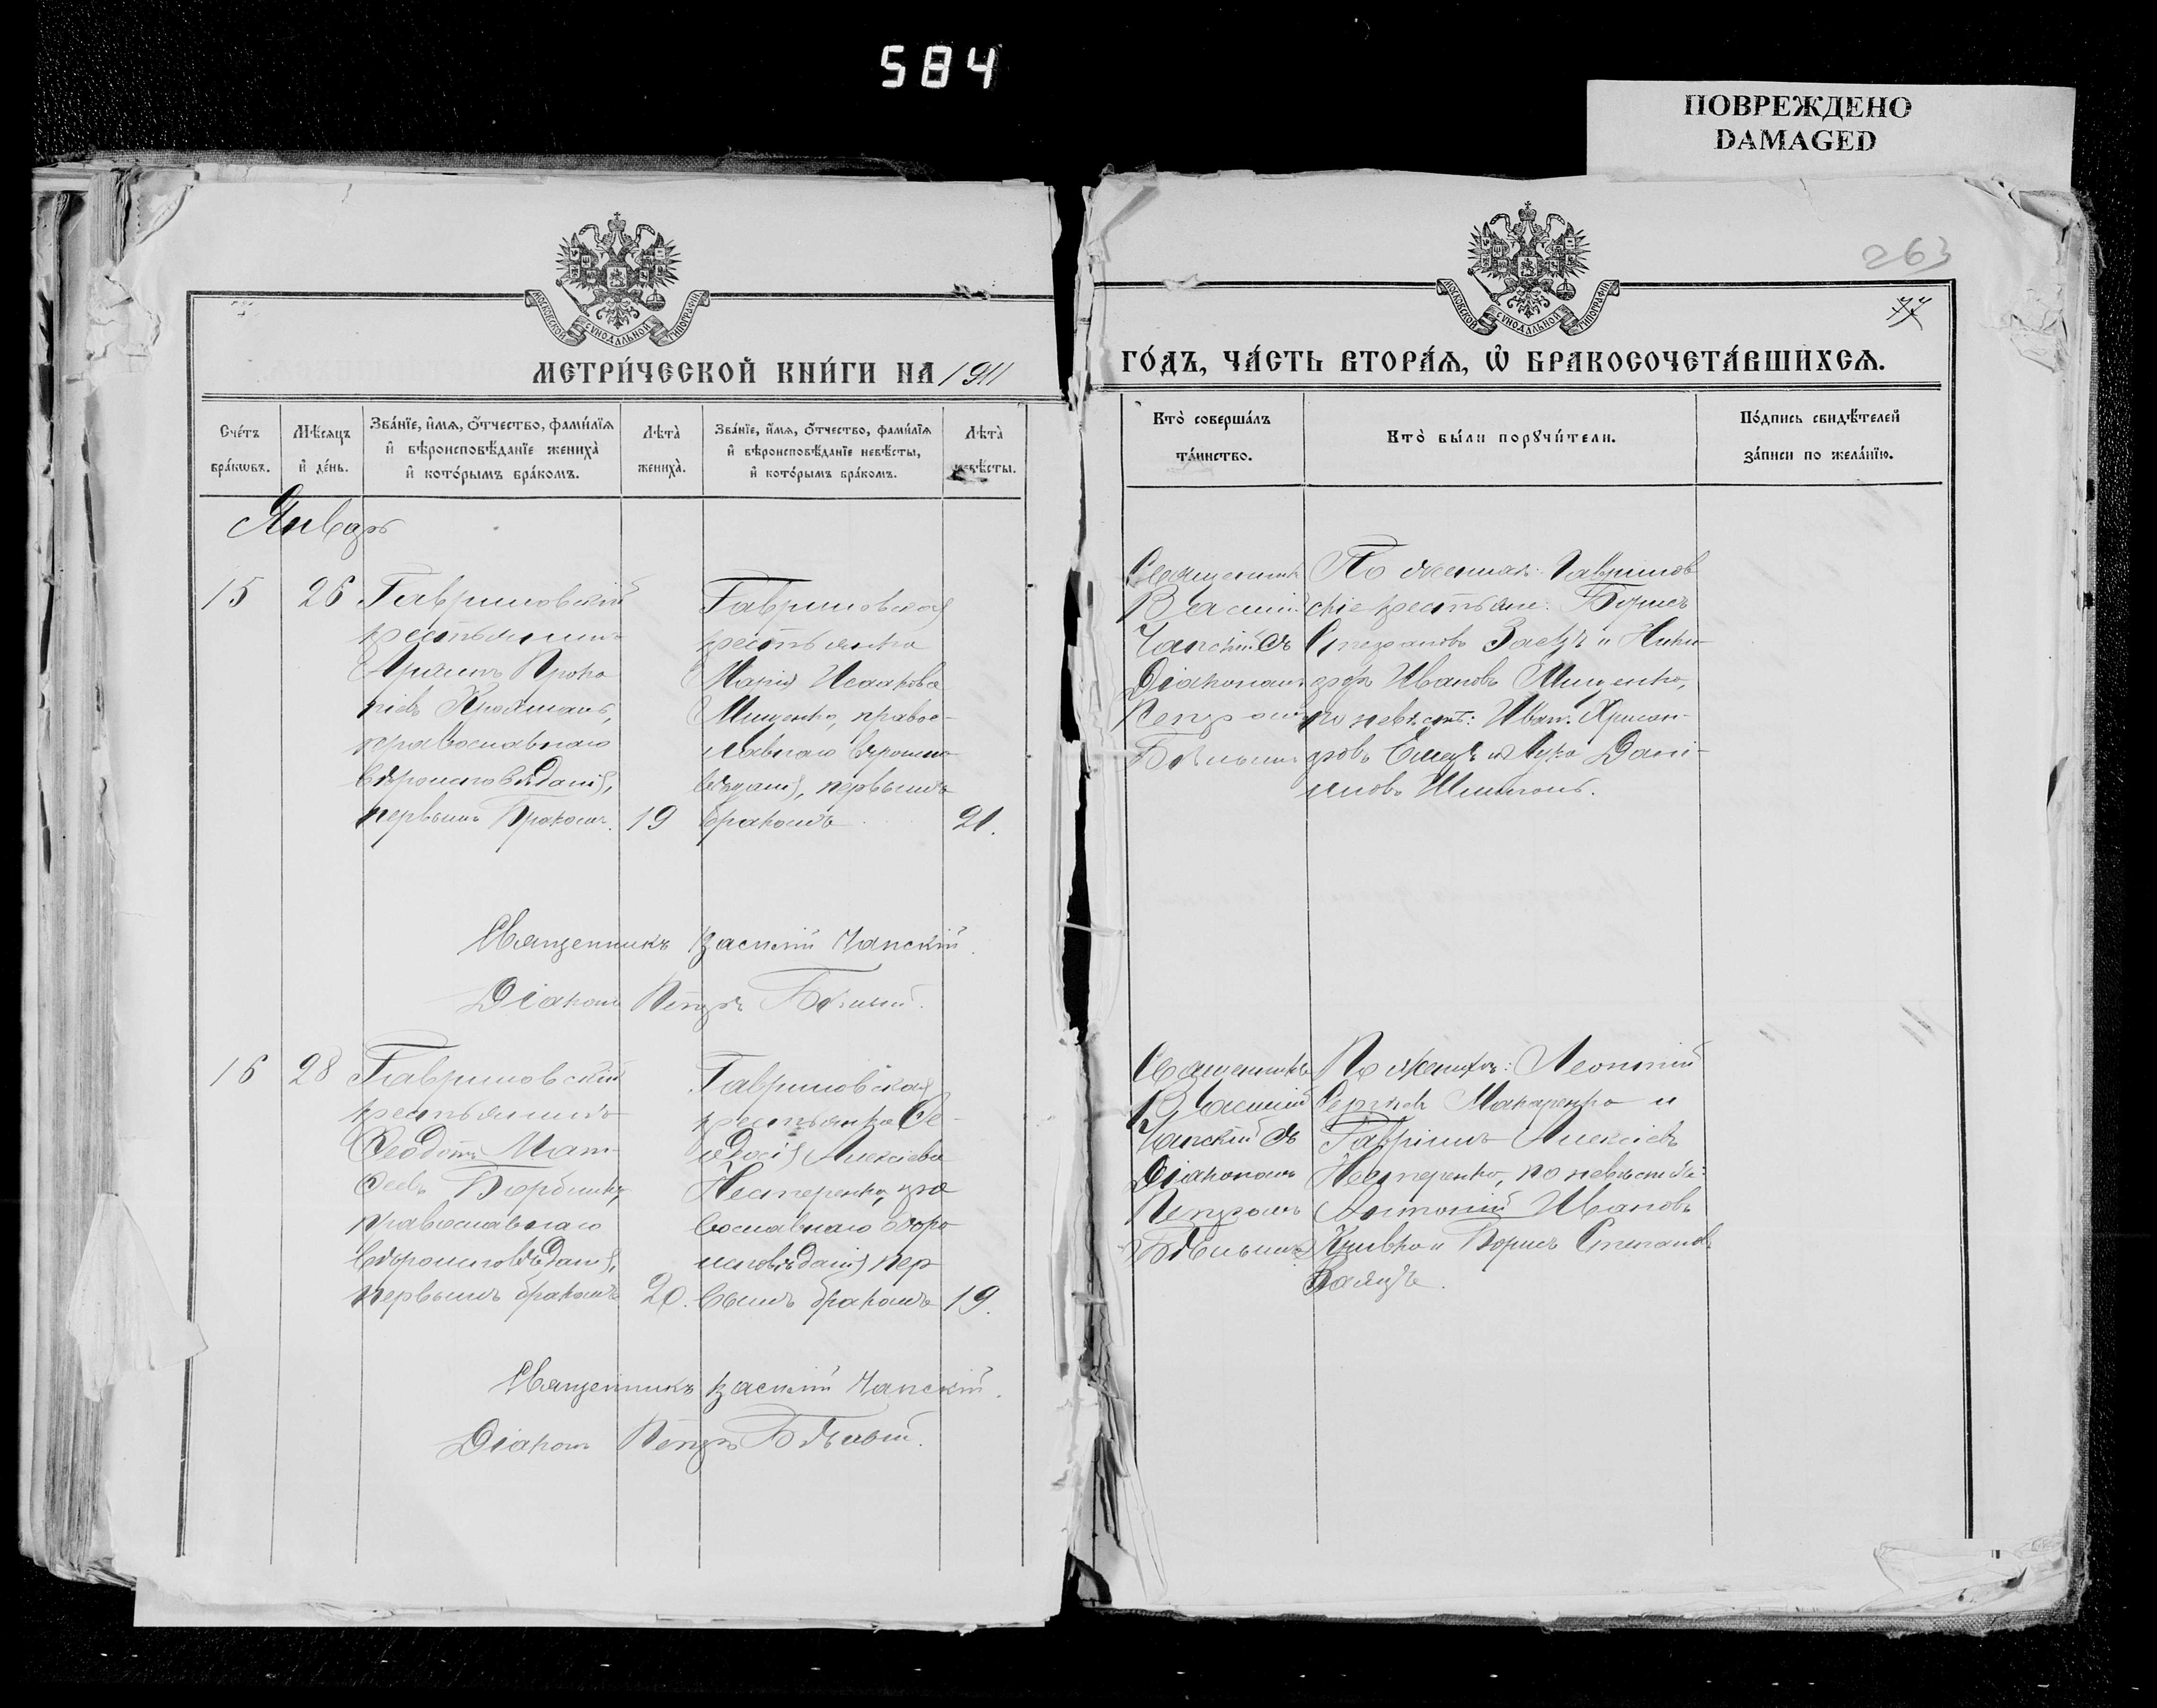 584
ПОВРЕЖДЕНО
DAMAGED
263
МОСКОВСКОЙ СѴНОДАЛЬНОЙ ТИПОГРАФІИ
МОСКОВСКОЙ СѴНОДАЛЬНОЙ ТИПОГРАФІИ
МЕТРИ́ЧЕСКОЙ КНИ́ГИ НА 1911
ГО́ДЪ, ЧА́СТЬ ВТОРА́Я, Ѡ҆ БРАКОСОЧЕТА́ВШИХСѦ.
Сче́тъ бра́кѡвъ.
Мѣ́сяцъ и҆ де́нь.
Зва́нїе, и҆́мя, ѻ҆́тчество, фами́лїя и҆ вѣроисповѣ́данїе жениха̀ и҆ кото́рымъ бра́комъ.
Лѣта̀ жениха̀.
Зва́нїе, и҆́мя, ѻ҆́тчество, фами́лїя и҆ вѣроисповѣ́данїе невѣ́сты, и҆ кото́рымъ бра́комъ.
Лѣта̀ невѣ́сты.
Кто̀ соверша́лъ та́инство.
Кто̀ бы́ли порꙋчи́тели.
По́дпись свидѣ́телей за́писи по жела́нїю.
Январь
15
26
Гавриловскій
крестьянинъ
Проко
піевъ
православнаго
вѣроисповѣданія,
первымъ бракомъ.
19
Гавриловская
крестьянка
Марія Исаакова
Мищенко, правос-
лавнаго вѣроиспо
вѣданія, первымъ
бракомъ
21.
Священникъ
Василій
Чапскій съ
Діакономъ
Петромъ
Бѣлымъ
По женихѣ: Гаврилов
скіе крестьяне: Борисъ
Стефановъ Заецъ и Ники
форъ Ивановъ Мищенко,
по невѣстѣ: Иван. Хрисан-
ѳовъ и Лука Дани-
иловъ
Священникъ Василій Чапскій.
Діаконъ Петръ Бѣлый.
16
28
Гавриловскій
крестьянинъ
Ѳеодотъ Мат-
ѳеевъ
православнаго
вѣроисповѣданія,
первымъ бракомъ
20.
Гавриловская
крестьянка Ѳе-
одосія Алексіева
Нестеренко, пра
вославнаго вѣро
исповѣданія пер
вымъ бракомъ
19.
Священникъ
Василій
Чапскій съ
Діакономъ
Петромъ
Бѣлымъ
По женихѣ: Леонтій
Сергіевъ Макаренко и
Гавріилъ Алексіевъ
Нестеренко, по невѣстѣ:
Антоній Ивановъ
и Борисъ Степановъ
Заяцъ.
Священникъ Василій Чапскій.
Діаконъ Петръ Бѣлый.